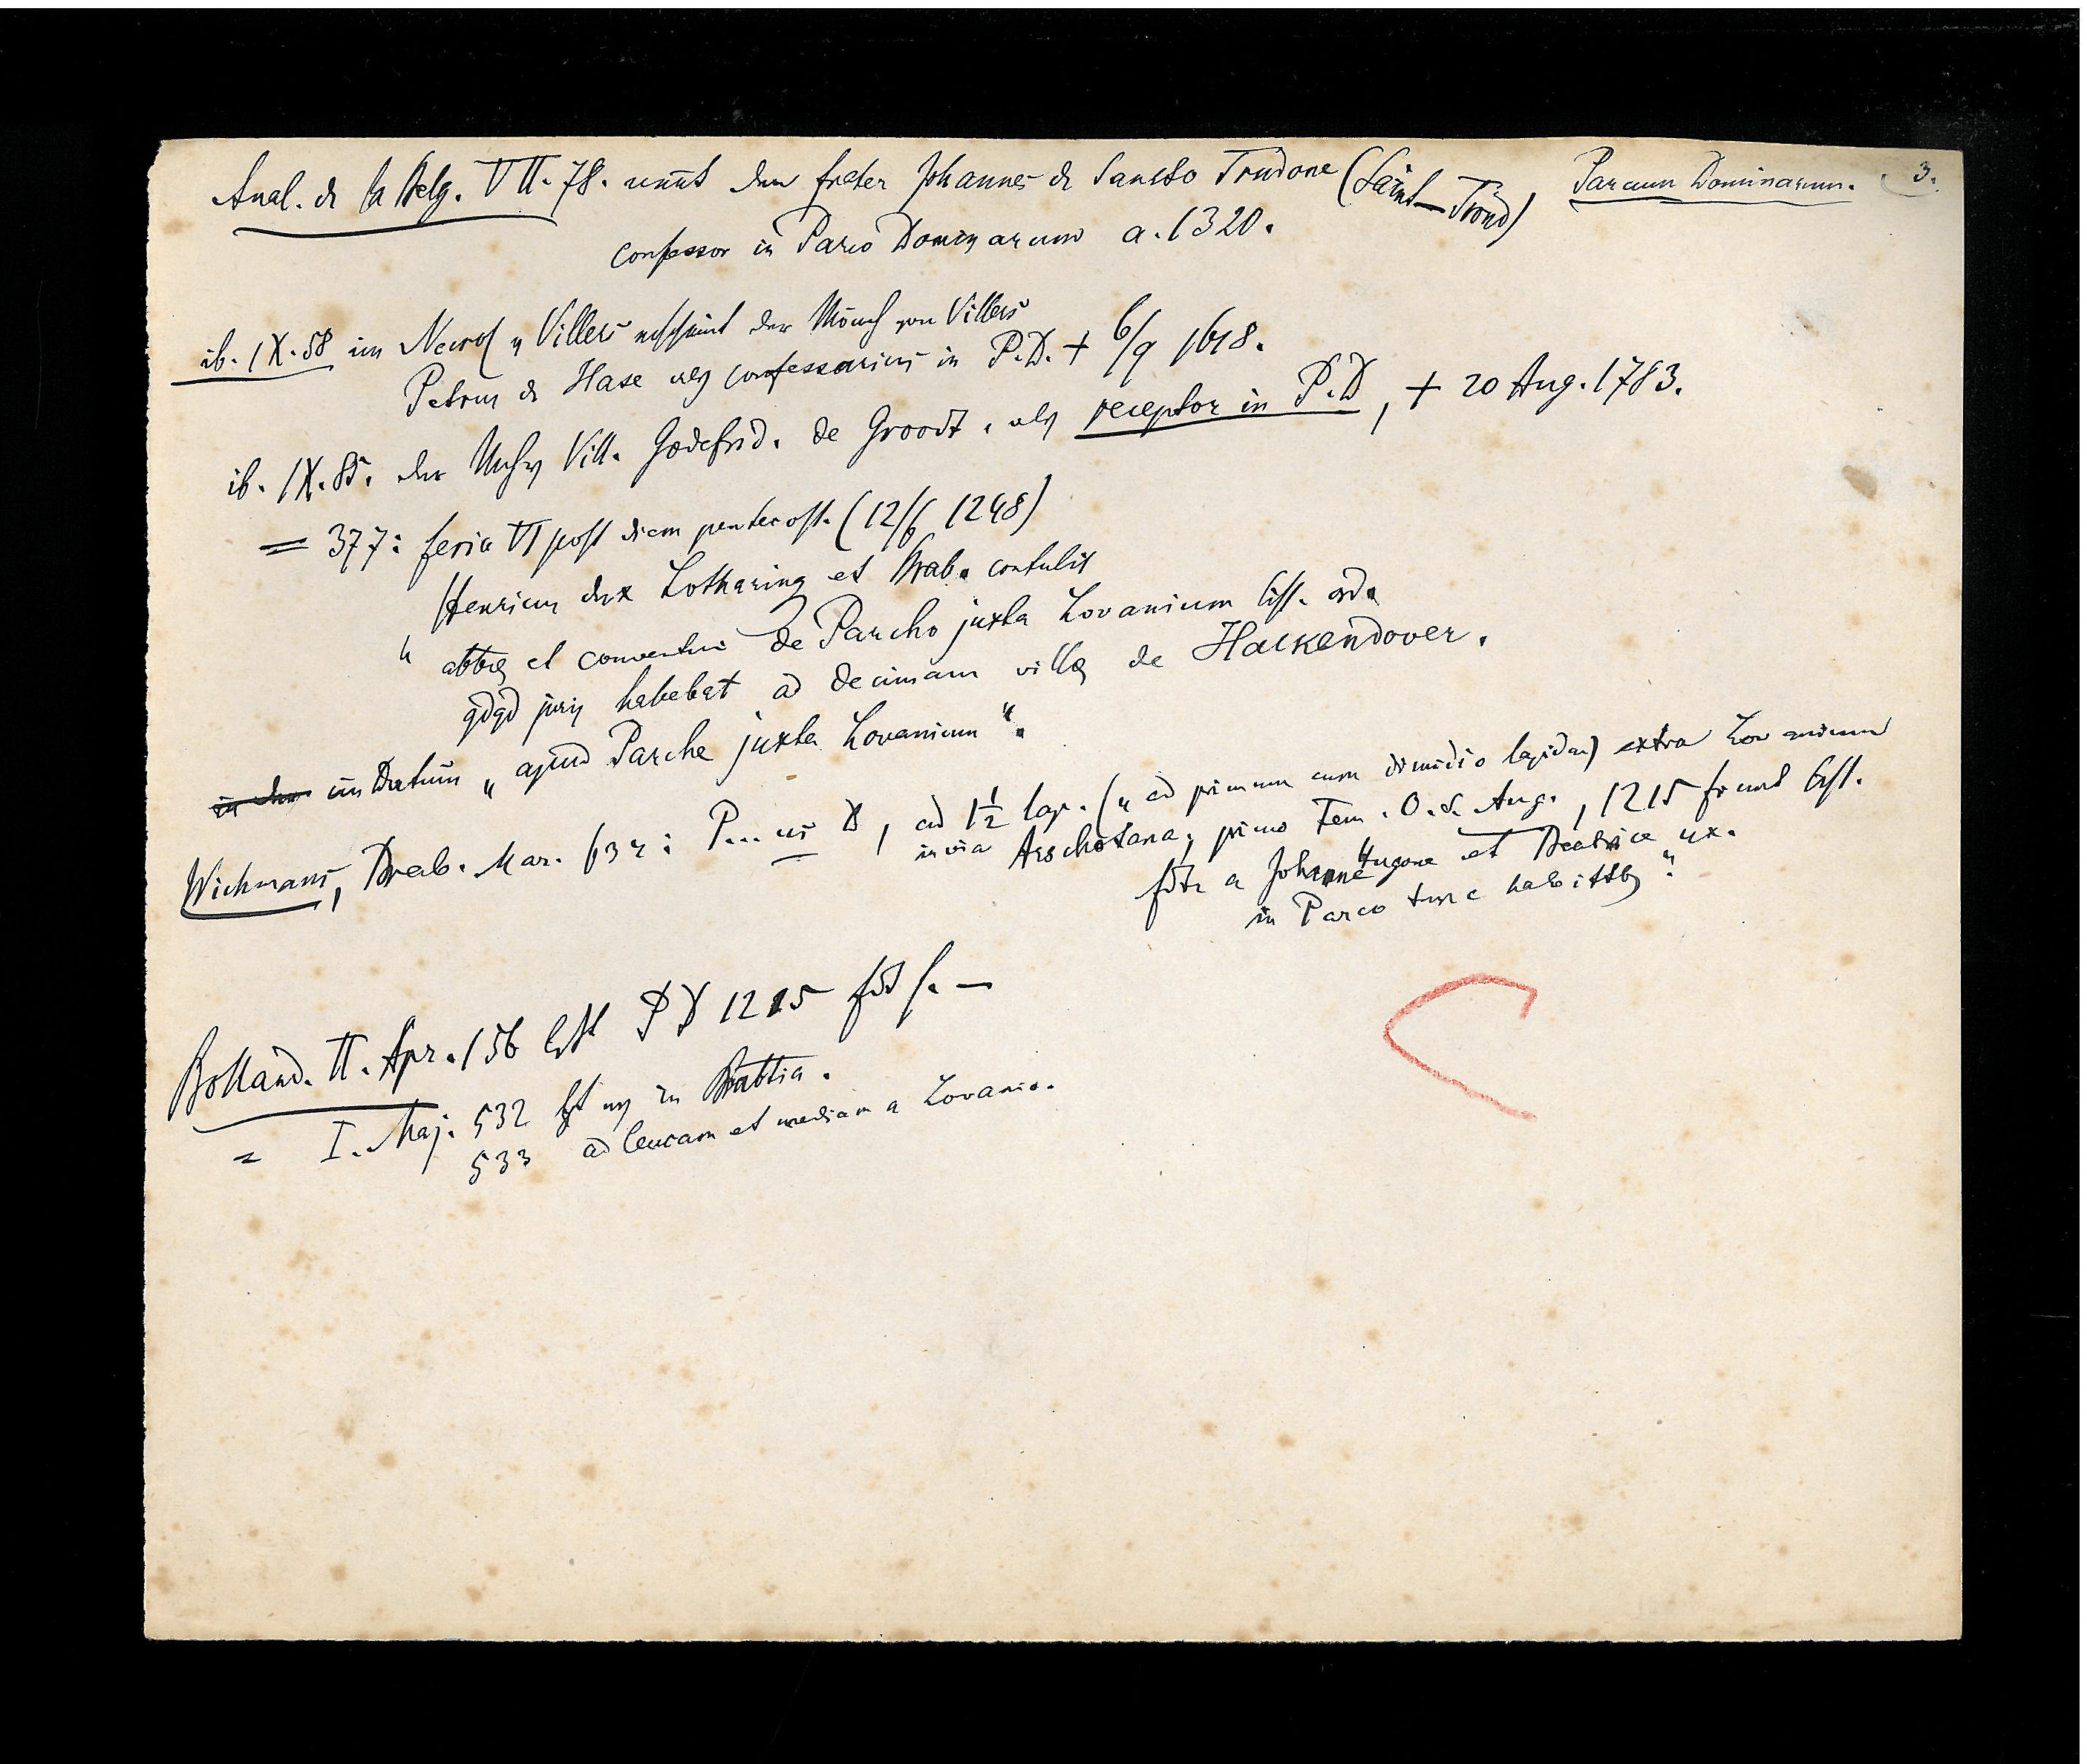 Parcum Dominarum. 3.
Anal. de la Belg. VII. 78. nennt den frater Johannes de Sancto Trudone (Saint-Trond)
confessor in Parco Dominarum a. 1320.
ib. IX. 58 im Necrol v Villers erscheint der Mönch von Villers
Petrus de Hase als confessarius in P.D. + 6/9 1618.
ib. IX. 85. der Vill. Godefrid. de Groodt, als receptor in P.D, + 20 Aug. 1783.
= 377: feria VI post diem pentecost. (12/6 1248)
Henricus dux Lotharing et Brab. contulit
" abbae et conventui de Parcho juxta Lovanium Cist. ord.
qdqd juris habebat ad decimam villae de Hackendover.
in dem im Datum „apud Parche juxta Lovanium“.
Wichmans, Brab. Mar. 634: P... us D, ad 1½ lap. („ad primum cum dimidio lapidem) extra Lovanium
in via Arschotana, primo Fem. O. S. Aug., 1215 fiunt Cist.
fdtr a Johanne Hugone et Beatrice ux.
in Parco tunc habittbs“.
Bolland. II. Apr. 156 PD 1215 fdt s. —
= I. Maj. 532 in Brabtia.
533 ad leucam et mediam a Lovanio.